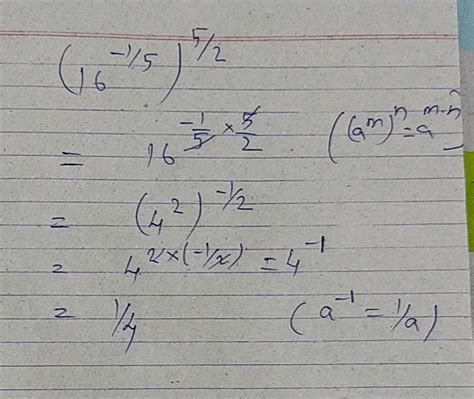 (16^-1/5)^5/2
= 16^(-1/5 × 5/2) ((a^m)^n = a^m·n)
= (4^2)^-1/2
= 4^2×(-1/2) = 4^-1
= 1/4 (a^-1 = 1/a)